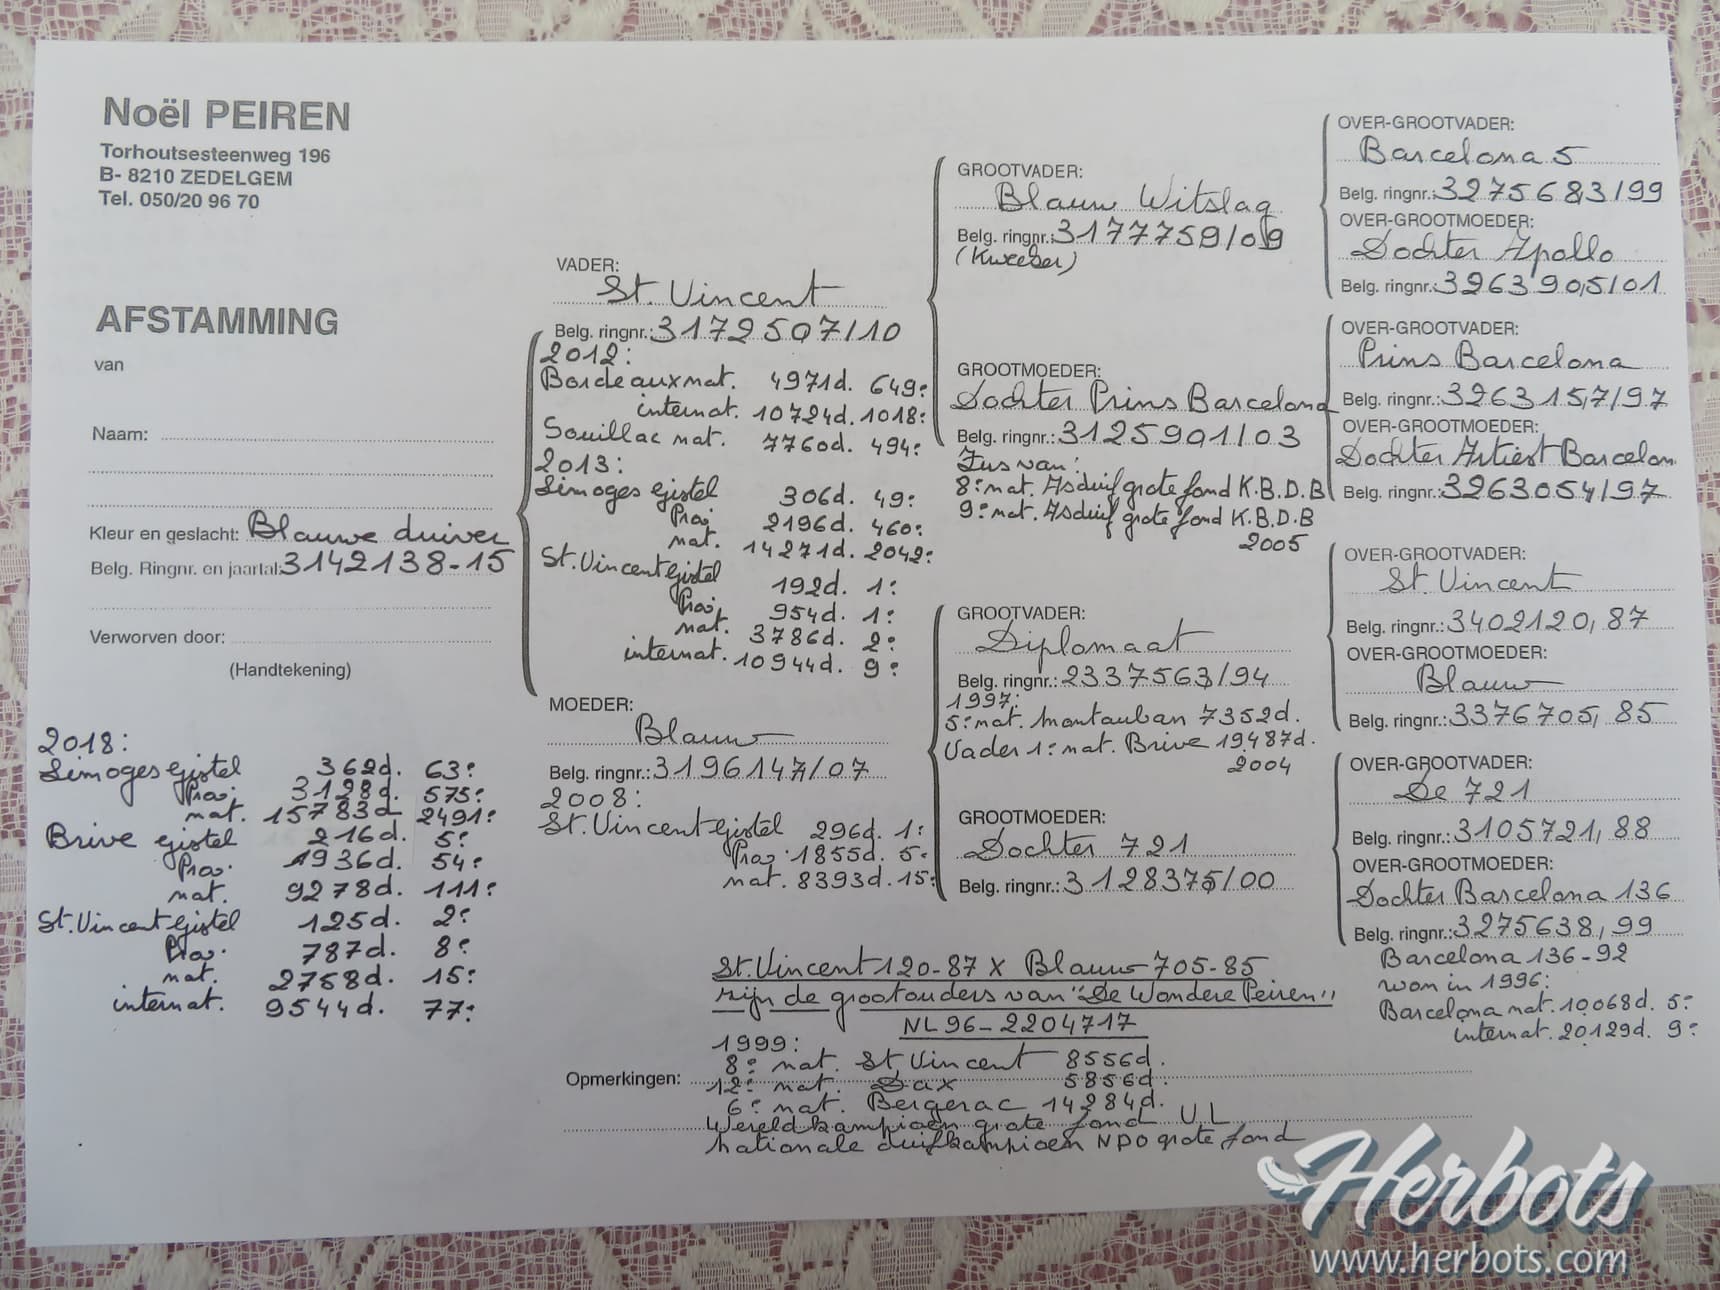 Noël PEIREN
Torhoutsesteenweg 196
B- 8210 ZEDELGEM
Tel. 050/20 96 70
AFSTAMMING
van
Naam:
Kleur en geslacht: Blauwe duiver
Belg. Ringnr. en jaartal: 3142138-15
Verworven door:
(Handtekening)
2018:
Limoges Gistel 362d. 63e
Prov. 3128d. 575e
nat. 15783d 2491e
Brive Gistel 216d. 5e
Prov. 1936d. 54e
nat. 9278d. 111e
St. Vincent Gistel 125d. 2e
Prov. 787d. 8e
nat. 2758d. 15e
internat. 9544d. 77e
VADER:
St. Vincent
Belg. ringnr.: 3172507/10
2012:
Bordeaux nat. 4971d. 649e
internat. 10724d. 1018e
Souillac nat. 7760d. 494e
2013:
Limoges Gistel 306d. 49e
Prov. 2196d. 460e
nat. 14271d. 2042e
St. Vincent Gistel 192d. 1e
Prov. 954d. 1e
nat. 3786d. 2e
internat. 10944d. 9e
MOEDER:
Blauw
Belg. ringnr.: 3196147/07
2008:
St. Vincent Gistel 296d. 1e
Prov. 1855d. 5e
nat. 8393d. 15e
GROOTVADER:
Blauw Witslag
Belg. ringnr.: 3177759/09
(Kweker)
GROOTMOEDER:
Dochter Prins Barcelona
Belg. ringnr.: 3125901/03
Zus van:
8e nat. Asduif grote fond K.B.D.B
9e nat. Asduif grote fond K.B.D.B
2005
GROOTVADER:
Diplomaat
Belg. ringnr.: 2337563/94
1997:
5e nat. Montauban 7352d.
Vader 1e nat. Brive 19487d.
2004
GROOTMOEDER:
Dochter 721
Belg. ringnr.: 3128375/00
OVER-GROOTVADER:
Barcelona 5
Belg. ringnr.: 3275683/99
OVER-GROOTMOEDER:
Dochter Apollo
Belg. ringnr.: 3263905/01
OVER-GROOTVADER:
Prins Barcelona
Belg. ringnr.: 3263157/97
OVER-GROOTMOEDER:
Dochter Artiest Barcelon
Belg. ringnr.: 3263054/97
OVER-GROOTVADER:
St. Vincent
Belg. ringnr.: 3402120, 87
OVER-GROOTMOEDER:
Blauw
Belg. ringnr.: 3376705, 85
OVER-GROOTVADER:
De 721
Belg. ringnr.: 3105721, 88
OVER-GROOTMOEDER:
Dochter Barcelona 136
Belg. ringnr.: 3275638, 99
Barcelona 136-92
won in 1996:
Barcelona nat. 10068d. 5e
internat. 20129d. 9e
St. Vincent 120-87 X Blauw 705-85
zijn de grootouders van "De Wondere Peiren"
NL 96-2204717
1999:
8e nat. St. Vincent 8556d.
Opmerkingen: 12e nat. Dax 5856d.
6e nat. Bergerac 14284d.
Wereldkampioen grote fond U.L
nationale duifkampioen NPO grote fond
Herbots
www.herbots.com